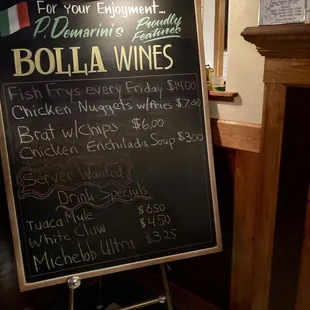 For your Enjoyment...
P. Demarini's Proudly Features
BOLLA WINES
Fish Frys every Friday $14.00
Chicken Nuggets w/fries $7.00
Brat w/chips $6.00
Chicken Enchilada Soup $3.00
Server Wanted
Drink Specials
Tuaca Mule $6.50
White Claw $4.50
Michelob Ultra $3.25